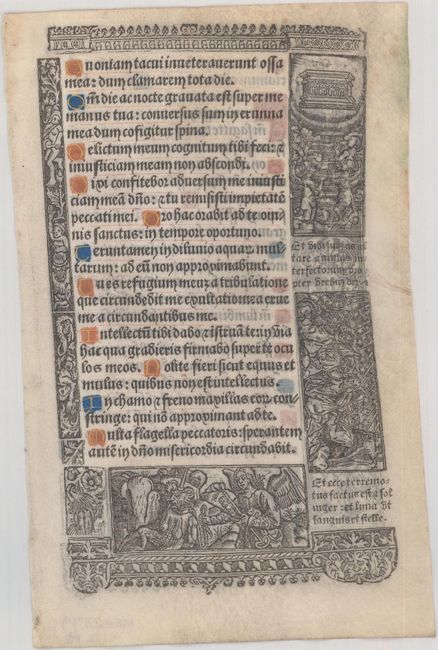 Quoniam tacui inveteraverunt ossa
mea: dum clamarem tota die.
Qm̄ die ac nocte gravata est super me
manus tua: conversus sum in erunna
mea dum cōfigitur spina.
Delictum meum cognitum tibi feci: ⁊
iniusticiam meam non abscondi.
Dixi confitebor adversum me iniusti
ciam meā dño: ⁊ tu remisisti impietatē
peccati mei. Pro hac orabit ad te om̄i
nis sanctus: in tempore oportuno.
Veruntamen in diluvio aquarū mul-
tarum: ad eū non approximabunt.
Tu es refugium meuz a tribulatione
que circundedit me exultatio mea erue
me a circundantibus me.
Intellectū tibi dabo ⁊ istruā te: in via
hac qua gradieris firmabo super te ocu
los meos. Nolite fieri sicut equus et
mulus: quibus nōn est intellectus.
In chamo ⁊ freno maxillas eorz con-
stringe: qui nō approximant ad te.
Multa flagella peccatoris: sperantem
autē in dño misericordia circundabit.
Et vidi subtus al
tare animas in
terfectorum
pter verbum
Et ecce terremo-
tus factus est ⁊ sol
niger: et luna vt
sanguis et stelle.